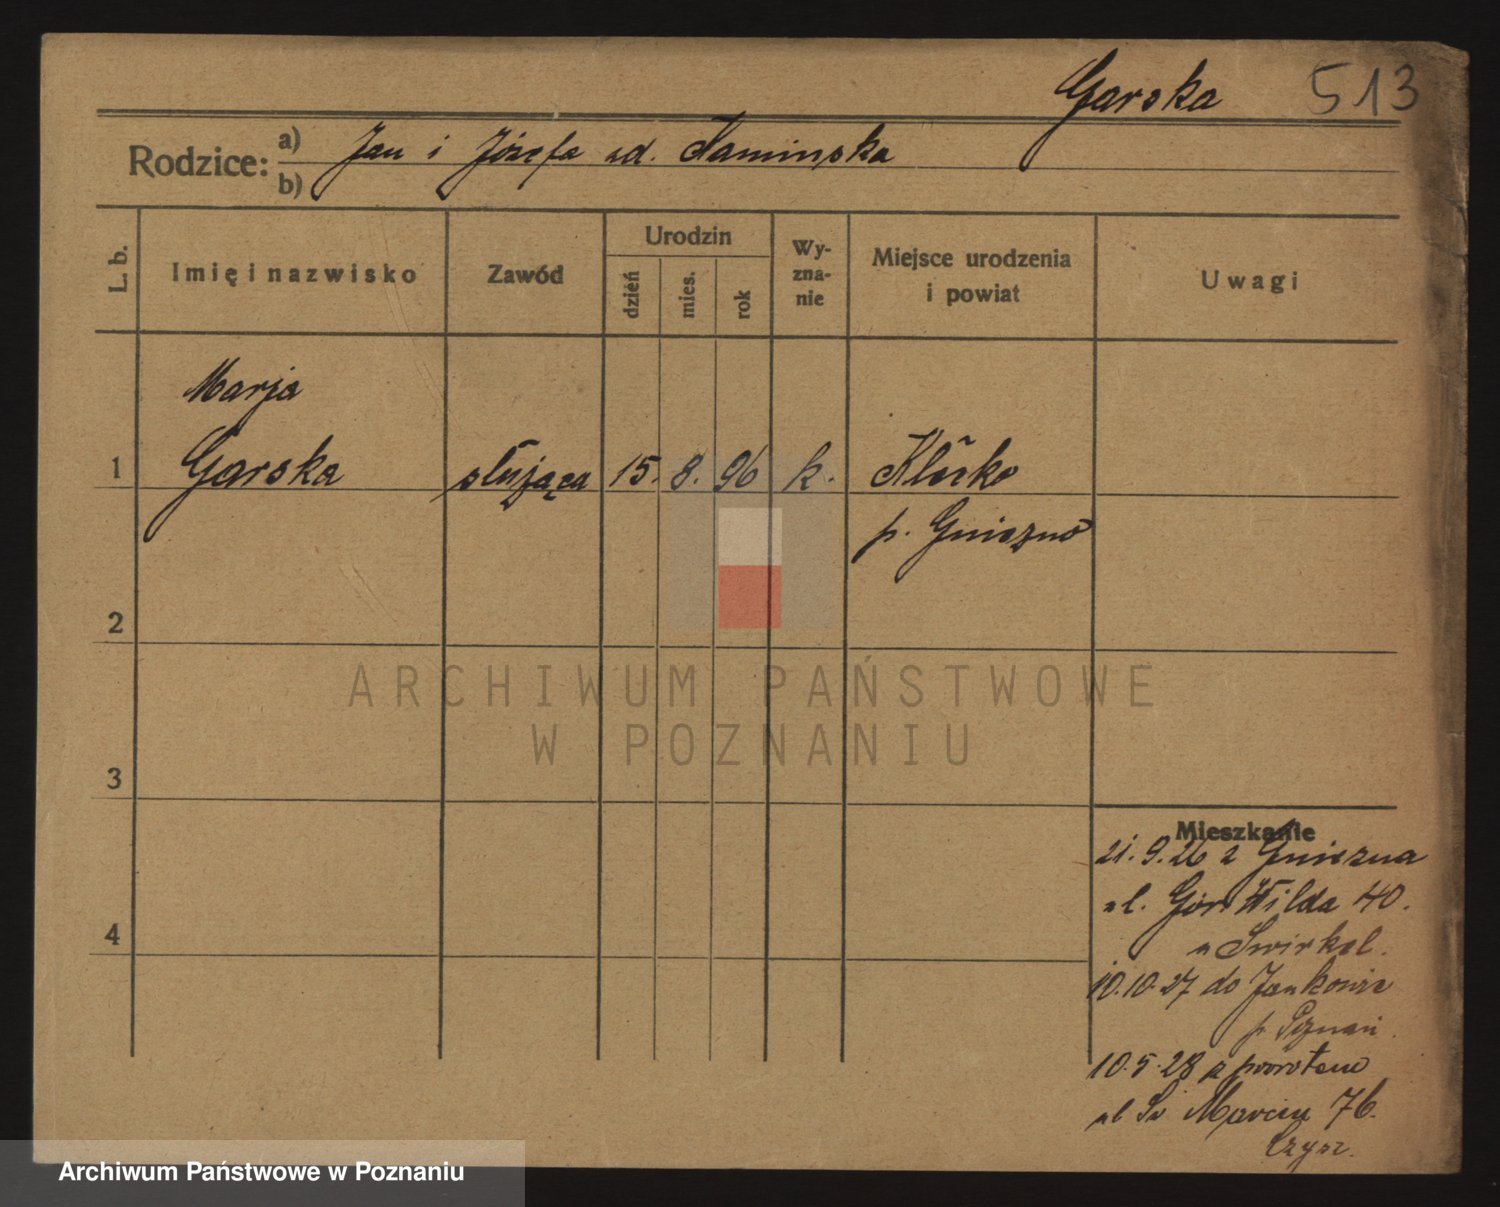 Garska 513
Rodzice: a) b) Jan i Józefa ud. Kaminska
L. b.
Imię i nazwisko
Zawód
Urodzin
dzień
mies.
rok
Wy-
zna-
nie
Miejsce urodzenia
i powiat
Uwagi
Marja
1 Garska służąca 15. 8. 96 k. Klecko
p. Gniezno
2
ARCHIWUM PAŃSTWOWE
W POZNANIU
3
Mieszkanie
21.9.26 z Gniezna
ul. Gór. Wilda 40.
u
4
10.10.27 do Jankowic
p. Poznań
10.5.28 z powrotem
ul Św Marcin 76.
Archiwum Państwowe w Poznaniu